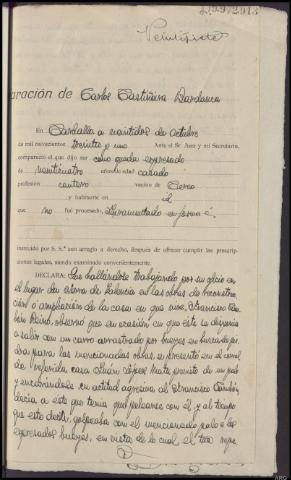 Veintisiete
aración de Carlos Castiñeira Dardama
En Carballo a veintidos de Octubre
de mil novecientos treinta y uno Ante el Sr. Juez y mi Secretario,
compareció el que dijo ser como queda expresado
de veinticuatro años de edad casado
profesión cantero vecino de Cerceo
y habitante en id
que no fué procesado, Juramentado en forma é
instruído por S. S.ª con arreglo a derecho, después de ofrecer cumplir las prescrip-
ciones legales, siendo examinado convenientemente.
DECLARA: Que hallándose trabajando por su oficio en
el lugar de de en las obras de reconstru
ción o ampliación de la casa en que vive, Francisco
observó que en ocasión en que éste se disponia
a salir con un carro arrastrado por bueyes en busca de pie
dras para las mencionadas obras, se presentó en el corral
de referida casa Juan López provisto de un palo
y encarándose en actitud agresiva al Francisco
decía a este que tenía que pelearse con él, y al tiempo
que esto decía, golpeaba con el mencionado palo a los
expresados bueyes, en vista de lo cual el